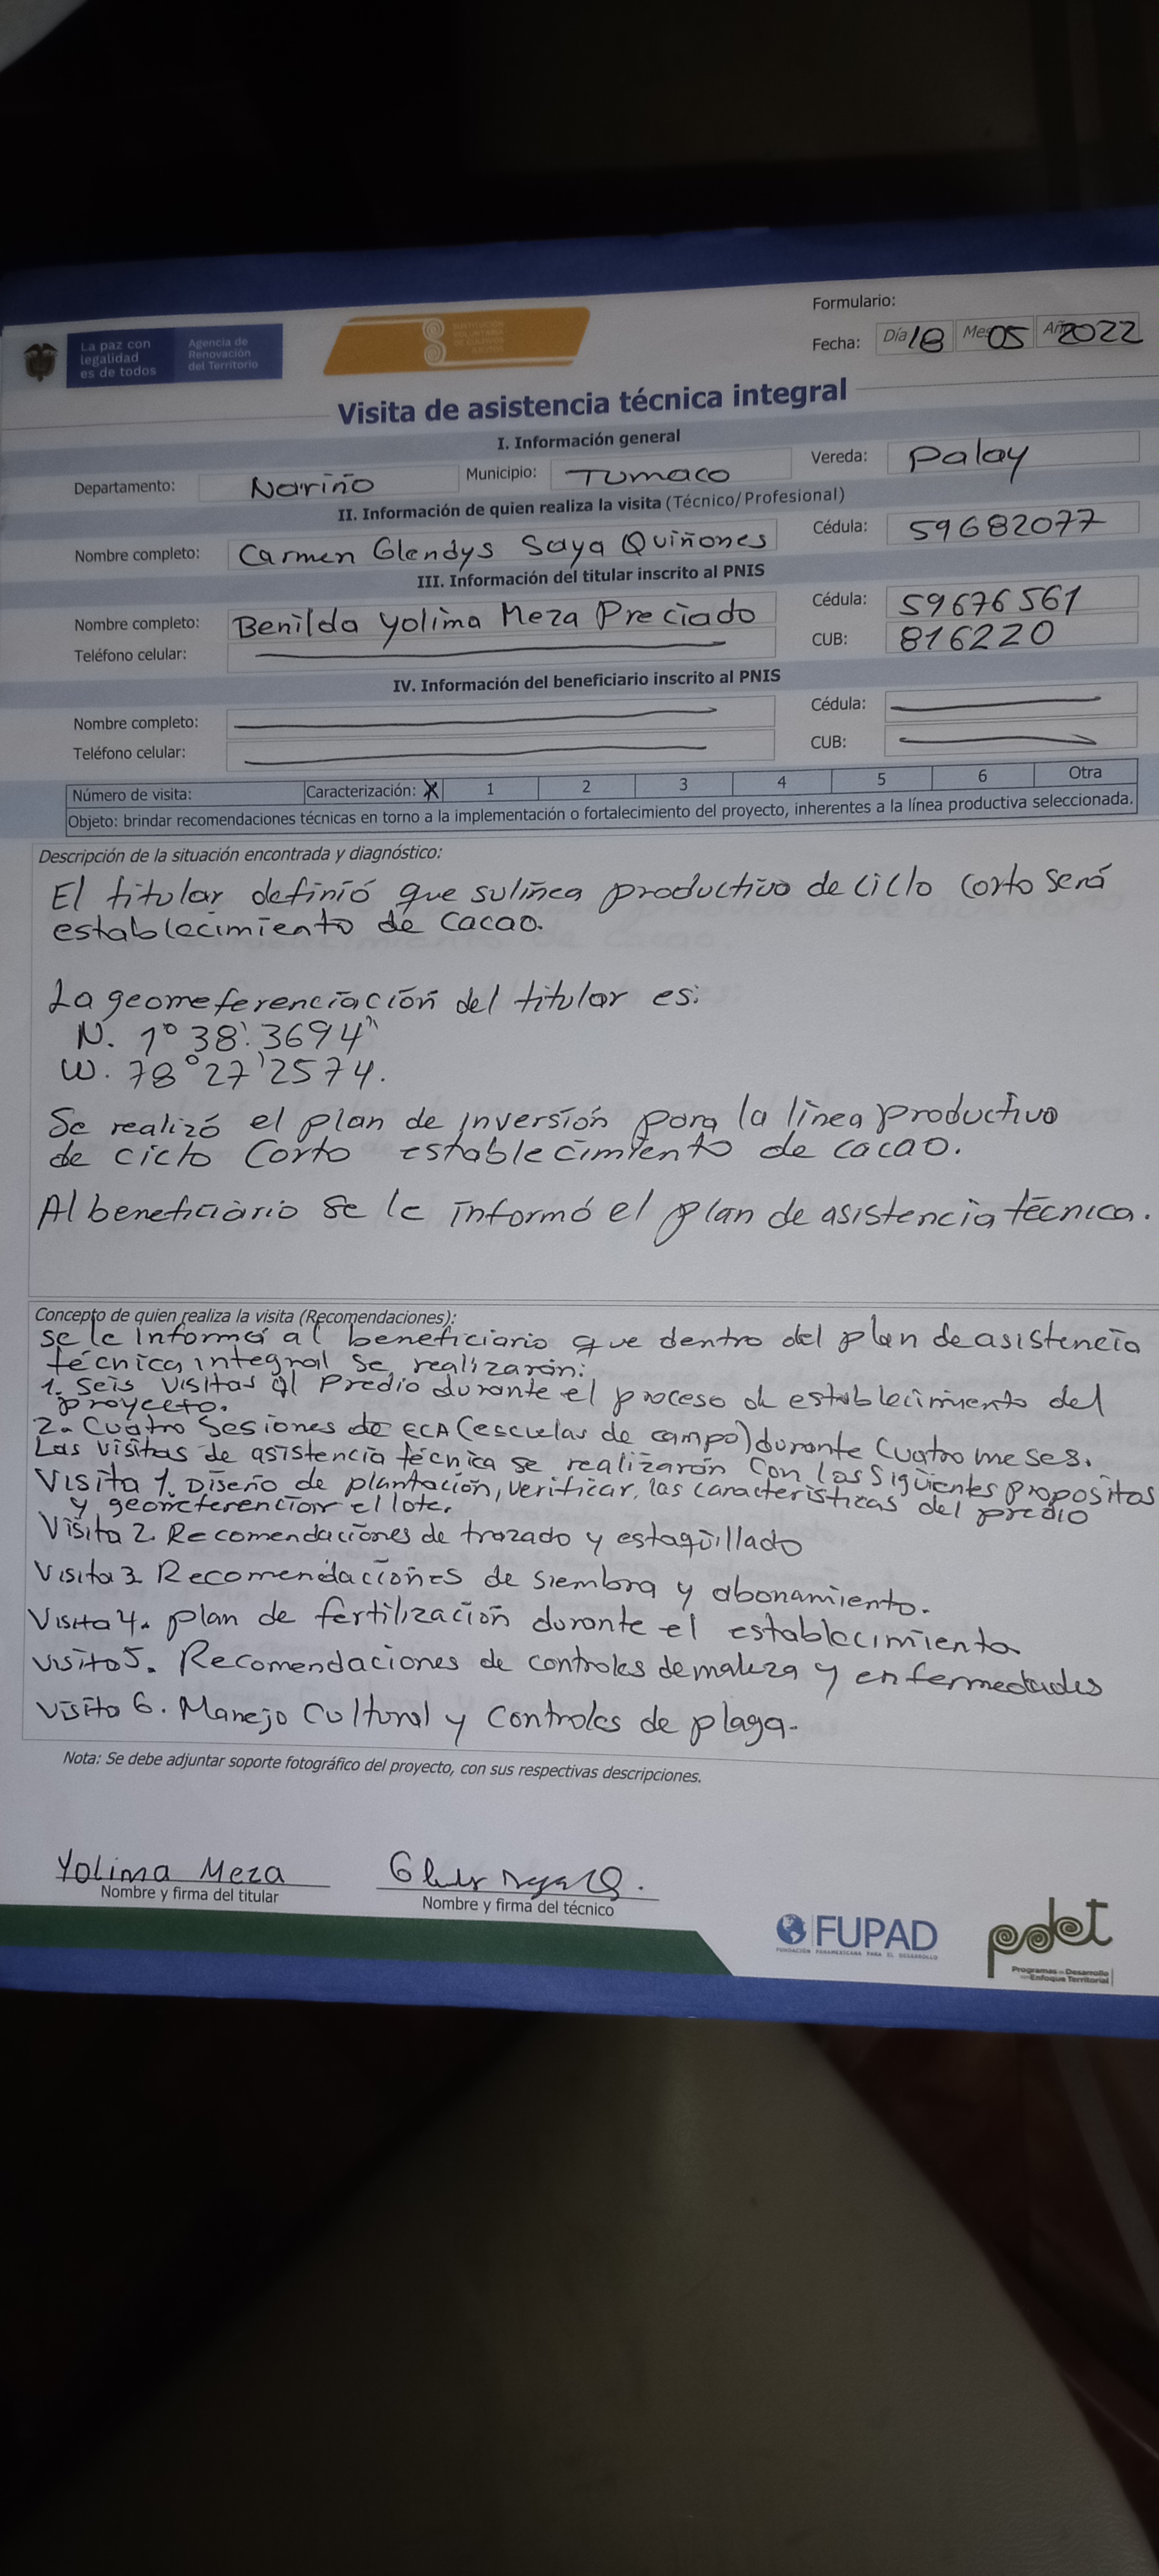 Formulario:
La paz con legalidad es de todos
Agencia de Renovación del Territorio
Fecha: Día 18 Mes 05 Año 2022
Visita de asistencia técnica integral
I. Información general
Departamento: Nariño Municipio: Tumaco Vereda: Palay
II. Información de quien realiza la visita (Técnico/Profesional)
Nombre completo: Carmen Glendys Saya Quiñones Cédula: 59682077
III. Información del titular inscrito al PNIS
Nombre completo: Benilda Yolima Meza Preciado Cédula: 59676561
Teléfono celular: CUB: 816220
IV. Información del beneficiario inscrito al PNIS
Nombre completo: Cédula:
Teléfono celular: CUB:
Número de visita: Caracterización: X 1 2 3 4 5 6 Otra
Objeto: brindar recomendaciones técnicas en torno a la implementación o fortalecimiento del proyecto, inherentes a la línea productiva seleccionada.
Descripción de la situación encontrada y diagnóstico:
El titular definió que su línea productiva de ciclo corto será
establecimiento de cacao.
La geomeferenciación del titular es:
N. 1° 38' 3694"
W. 78° 27' 2574.
Se realizó el plan de inversión para la línea productiva
de ciclo corto establecimiento de cacao.
Al beneficiario se le informó el plan de asistencia técnica.
Concepto de quien realiza la visita (Recomendaciones):
se le informa al beneficiario que dentro del plan de asistencia
técnica integral se realizarán:
1. Seis visitas al predio durante el proceso de establecimiento del
proyecto.
2. Cuatro sesiones de ECA (escuelas de campo) durante cuatro meses.
Las visitas de asistencia técnica se realizarán con los siguientes propositos
Visita 1. Diseño de plantación, verificar las características del predio
y georreferenciar el lote.
Visita 2. Recomendaciones de trazado y estaquillado
Visita 3 Recomendaciones de siembra y abonamiento.
Visita 4. plan de fertilización durante el establecimiento.
visita 5. Recomendaciones de controles de maleza y enfermedades
visita 6. Manejo cultural y controles de plaga.
Nota: Se debe adjuntar soporte fotográfico del proyecto, con sus respectivas descripciones.
Yolima Meza
Nombre y firma del titular
Nombre y firma del técnico
FUPAD
FUNDACIÓN PANAMERICANA PARA EL DESARROLLO
pdet
Programas de Desarrollo con Enfoque Territorial